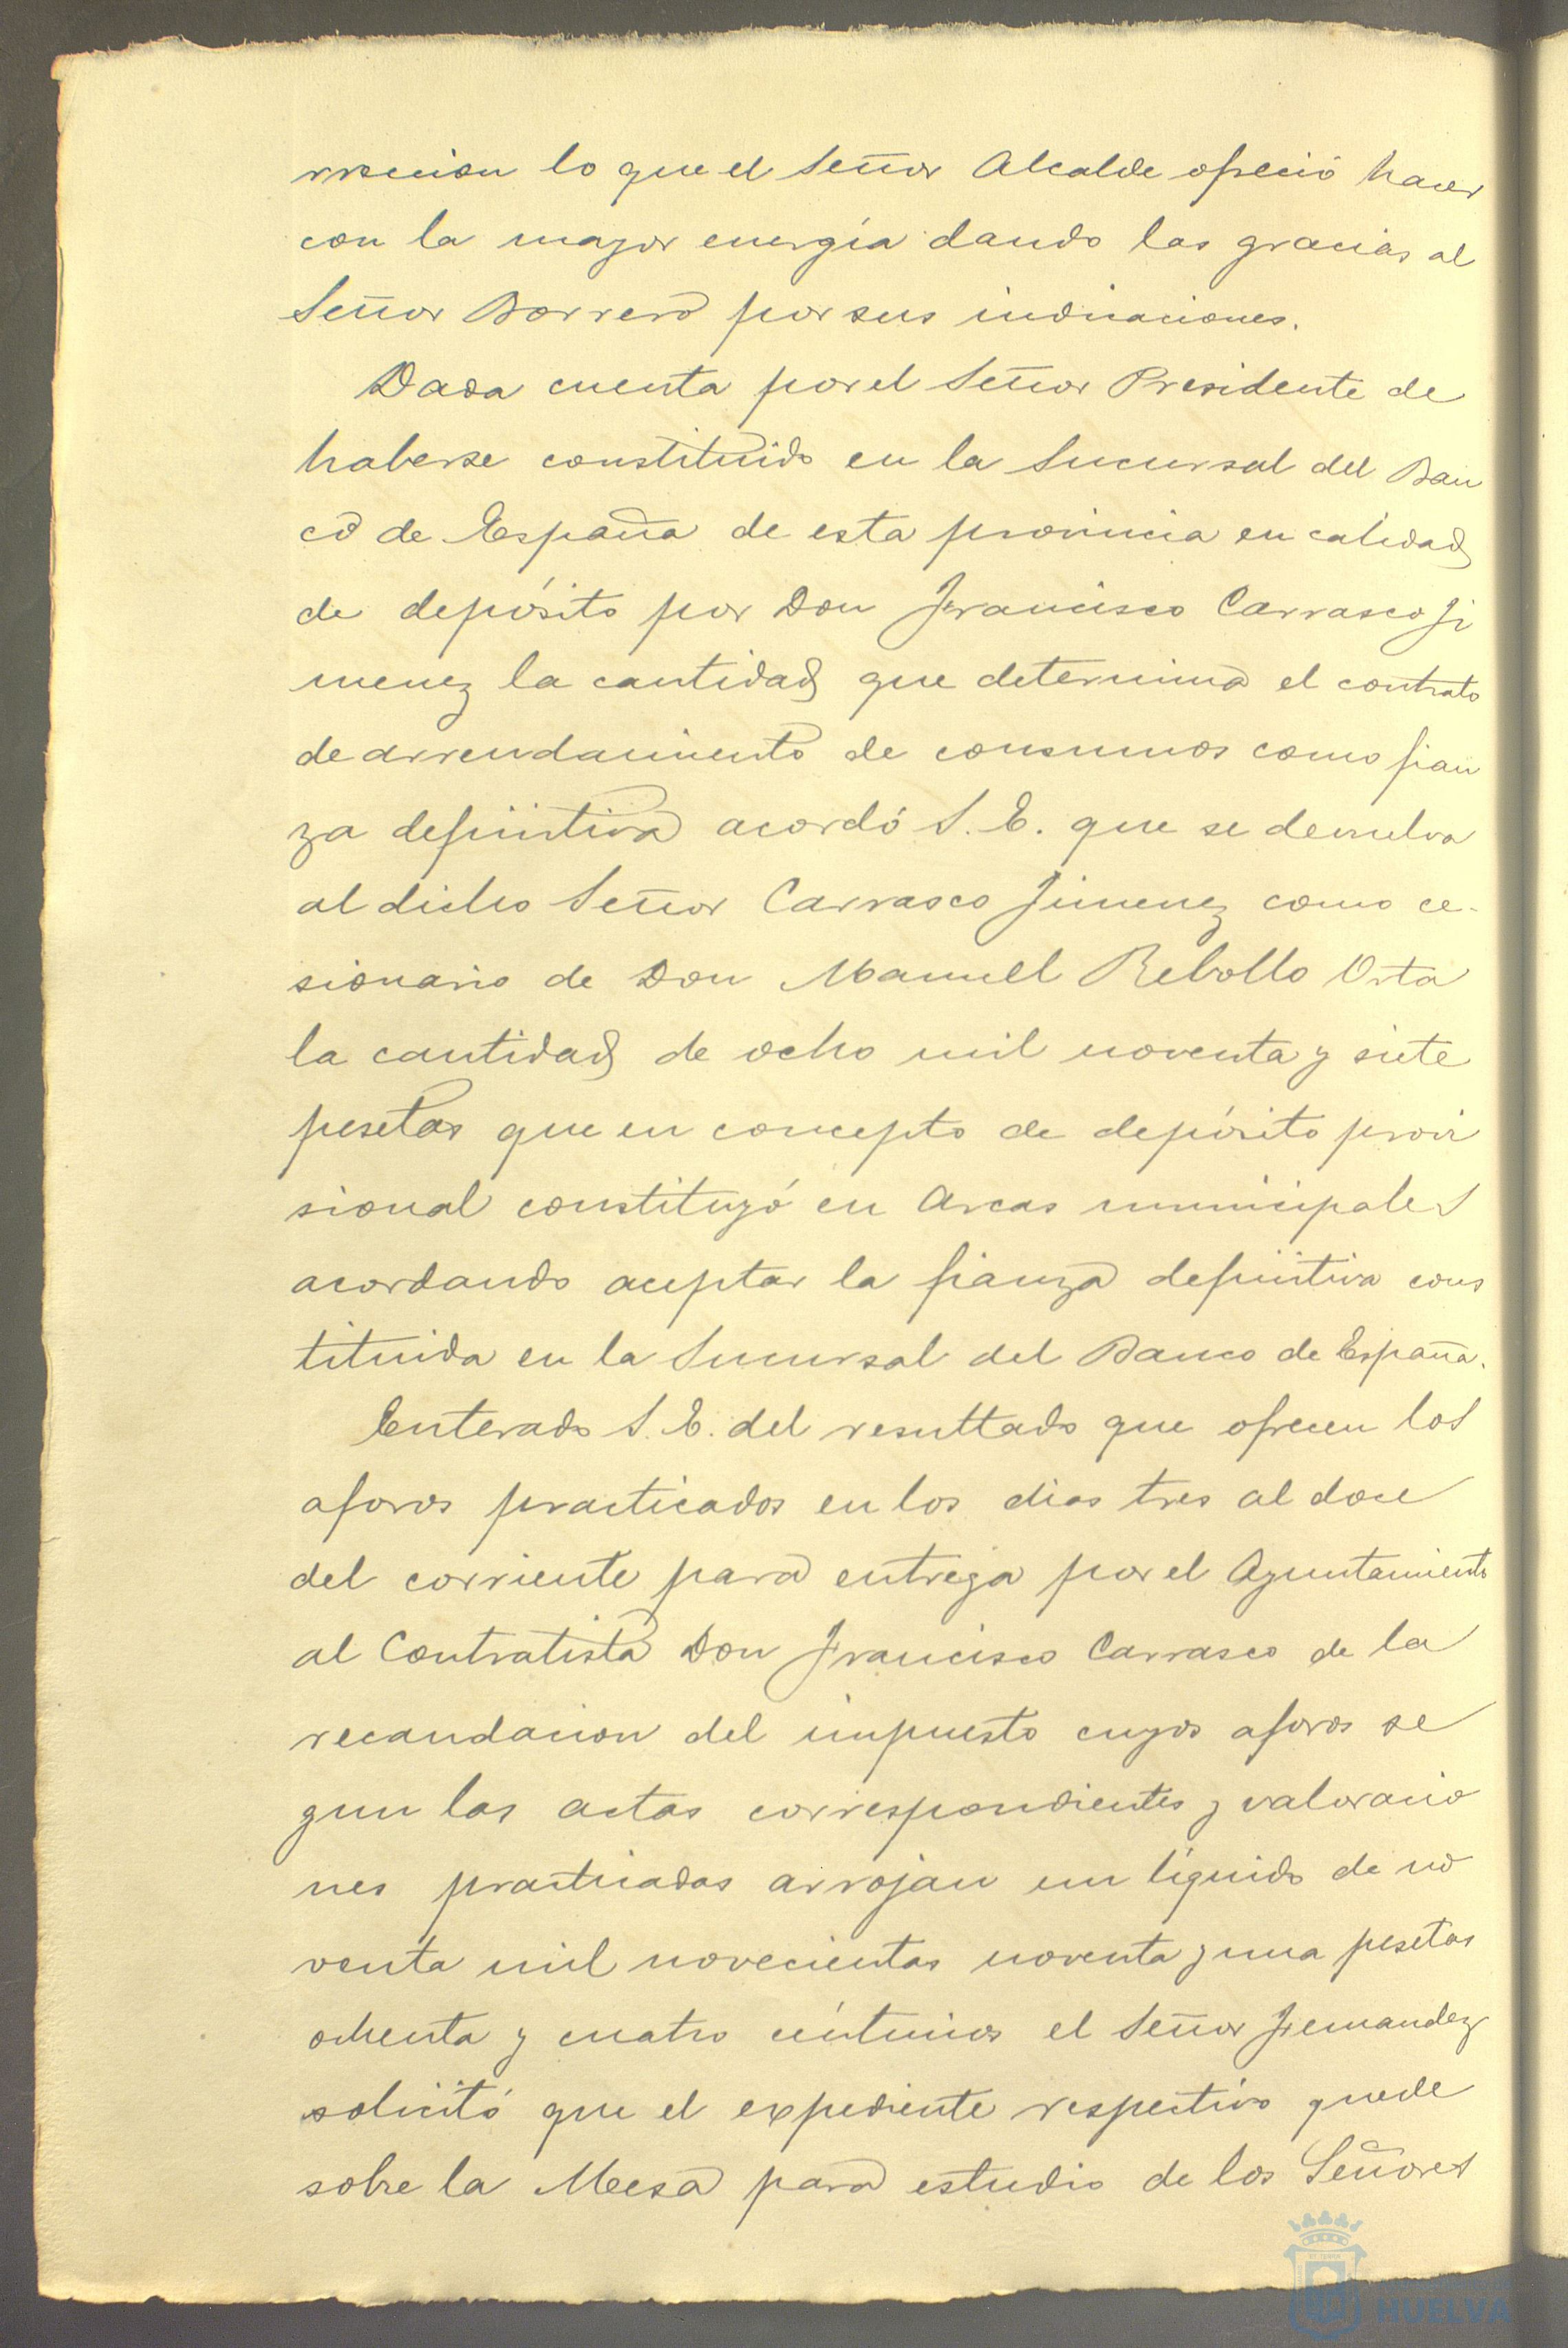 rreccion lo que el Señor Alcalde ofreció hacer
con la mayor energía dando las gracias al
Señor Borrero por sus indicaciones.
Dada cuenta por el Señor Presidente de
haberse constituido en la Sucursal del Ban
co de España de esta provincia en calidad
de depósito por Don Francisco Carrasco Ji
menez la cantidad que determina el contrato
de arrendamiento de consumos como fian
za definitiva acordó S. E. que se devuelva
al dicho Señor Carrasco Jimenez como ce-
sionario de Don Manuel Rebollo Orta
la cantidad de ocho mil noventa y siete
pesetas que en concepto de depósito provi
sional constituyó en Arcas municipales
acordando aceptar la fianza definitiva cons
tituida en la Sucursal del Banco de España.
Enterado S. E. del resultado que ofrecen los
aforos practicados en los dias tres al doce
del corriente para entrega por el Ayuntamiento
al Contratista Don Francisco Carrasco de la
recaudacion del impuesto cuyos aforos se
gun las actas correspondientes y valoracio
nes practicadas arrojan un líquido de no
venta mil novecientas noventa y una pesetas
ochenta y cuatro céntimos el Señor Fernandez
solicitó que el expediente respectivo quede
sobre la Mesa para estudio de los Señores
HUELVA